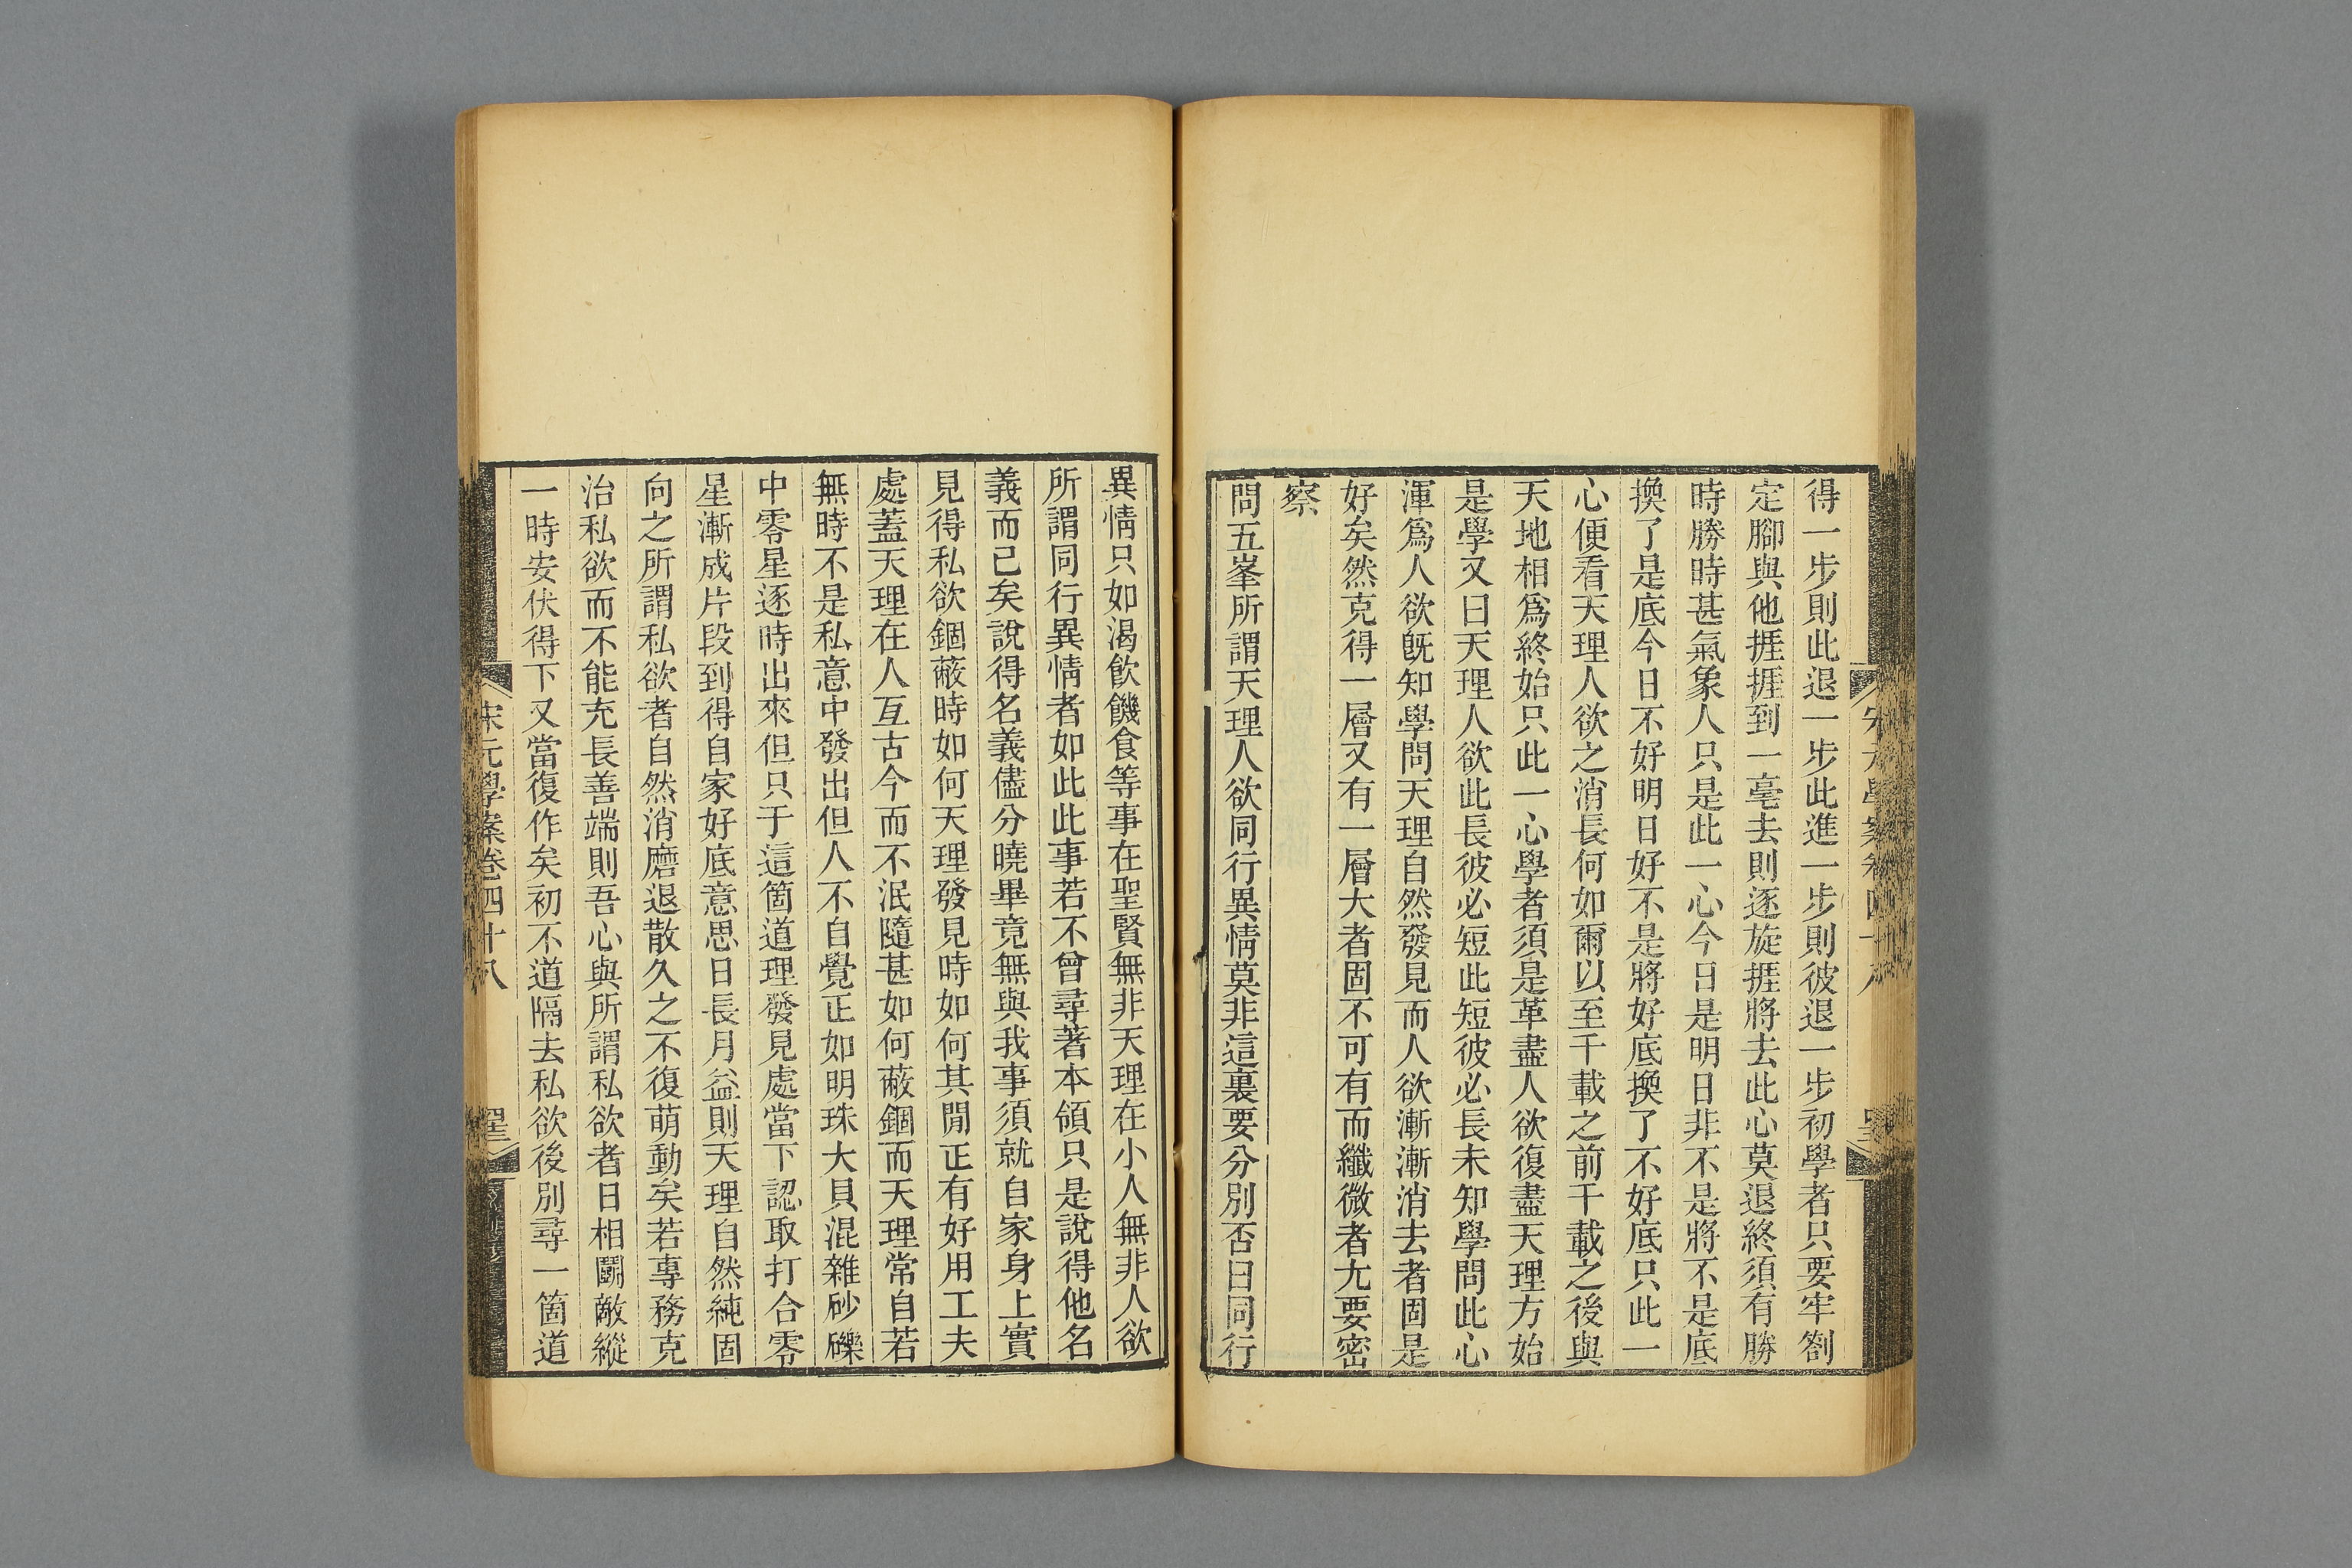 得一步則此退一步此進一步則彼退一步初學者只要牢劄
定腳與他捱捱到一毫去則逐旋捱將去此心莫退終須有勝
時勝時甚氣象人只是此一心今日是明日非不是將不是底
換了是底今日不好明日好不是將好底換了不好底只此一
心便看天理人欲之消長何如爾以至千載之前千載之後與
天地相爲終始只此一心學者須是革盡人欲復盡天理方始
是學又曰天理人欲此長彼必短此短彼必長未知學問此心
渾爲人欲既知學問天理自然發見而人欲漸漸消去者固是
好矣然克得一層又有一層大者固不可有而纖微者尢要密
察
問五峯所謂天理人欲同行異情莫非這裏要分別否曰同行
異情只如渴飲饑食等事在聖賢無非天理在小人無非人欲
所謂同行異情者如此此事若不曾尋著本領只是說得他名
義而已矣說得名義儘分曉畢竟無與我事須就自家身上實
見得私欲錮蔽時如何天理發見時如何其閒正有好用工夫
處蓋天理在人亙古今而不泯隨甚如何蔽錮而天理常自若
無時不是私意中發出但人不自覺正如明珠大貝混雜砂礫
中零星逐時出來但只于這箇道理發見處當下認取打合零
星漸成片段到得自家好底意思日長月益則天理自然純固
向之所謂私欲者自然消磨退散久之不復萌動矣若專務克
治私欲而不能充長善端則吾心與所謂私欲者日相鬭敵縱
一時安伏得下又當復作矣初不道隔去私欲後別尋一箇道
宋元學案卷四十八